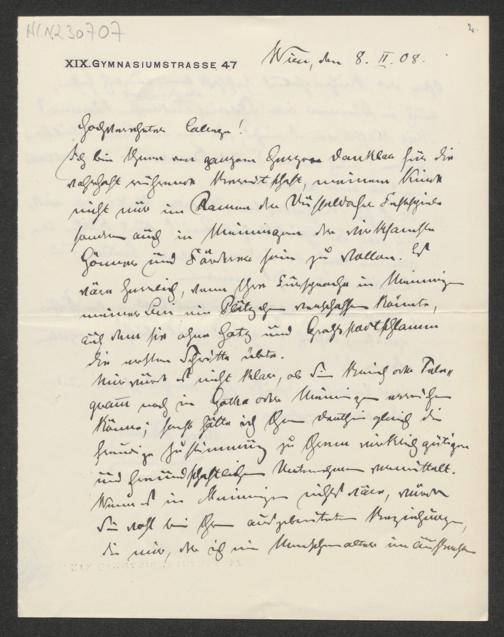 H.I.N. 230707
2.
XIX. GYMNASIUMSTRASSE 47
Wien, den 8. II. 08.
Hochverehrter College!
Ich bin Ihnen von ganzem Herzen dankbar für die
wahrhaft rührende Bereitschaft, meinem Kinde
nicht nur im Ramen der Düsseldorfer Festspiele
sondern auch in Meiningen der wirksamste
Gönner und Förderer sein zu wollen. Es
wäre herrlich, wenn Ihre Fürsprache in Meiningen
meiner ein Plätzchen verschaffen könnte,
auf dem sie ohne Hatz und Großstadtschlamm
die ersten Schritte übte.
Mir würde es nicht klar, ob Sie Brief oder Tele-
gramm noch in Gotha oder Meiningen erreichen
könne; sonst hätte ich Ihnen dorthin gleich die
freudige Zustimmung zu Ihrem wirklich gütigen
und freundschaftlichen Unternehmen vermittelt.
Wenn es in Meiningen nichts wäre, würden
Sie wohl bei Ihren ausgebreiteten Beziehungen,
die mir, der ich ein Menschenalter im